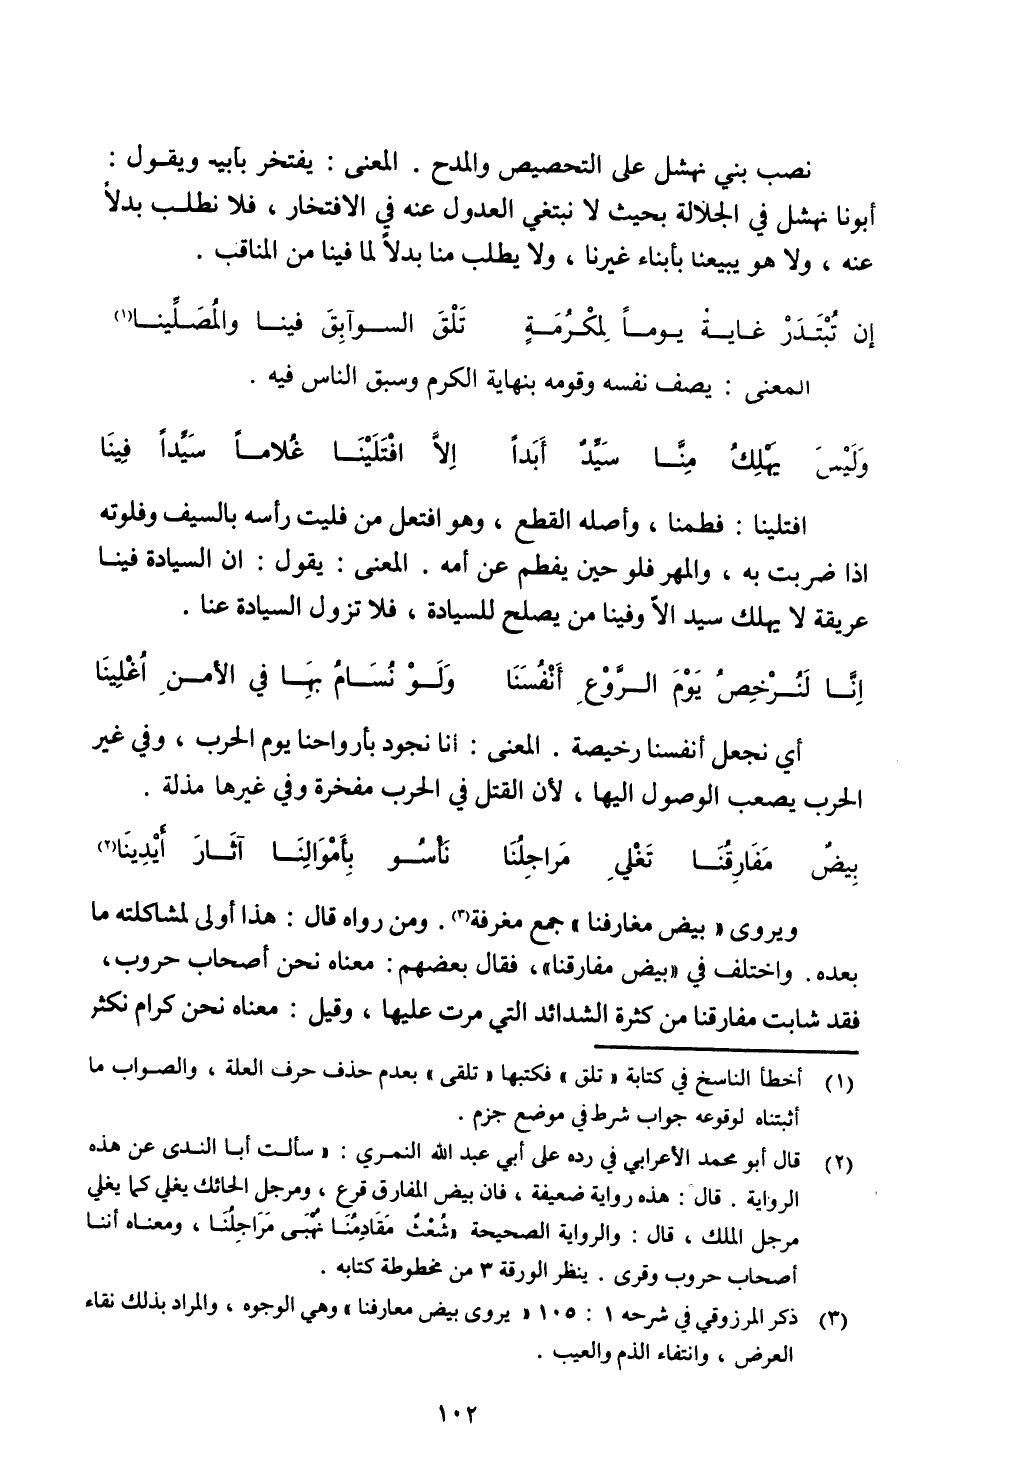 نصب بني نهشل على التحصيص والمدح . المعنى : يفتخر بأبيه ويقول :
أبونا نهشل في الجلالة بحيث لا نبتغي العدول عنه في الافتخار ، فلا نطلب بدلاً
عنه ، ولا هو يبيعنا بأبناء غيرنا ، ولا يطلب منا بدلاً لما فينا من المناقب .
إن تُبْتَدَرْ غايةٌ يوماً لِمَكْرُمَةٍ تَلْقَ السوآبِقَ فينا والمُصَلِّينا(١)
المعنى : يصف نفسه وقومه بنهاية الكرم وسبق الناس فيه .
وَلَيْسَ يَهْلِكُ مِنَّا سَيِّدٌ أَبَداً إِلاَّ افْتَلَيْنَا غُلاماً سَيِّداً فِينَا
افتلينا : فطمنا ، وأصله القطع ، وهو افتعل من فليت رأسه بالسيف وفلوته
اذا ضربت به ، والمهر فلو حين يفطم عن أمه . المعنى : يقول : ان السيادة فينا
عريقة لا يهلك سيد الاّ وفينا من يصلح للسيادة ، فلا تزول السيادة عنا .
إِنَّا لَنُرْخِصُ يَوْمَ الرَّوْعِ أَنْفُسَنَا وَلَوْ نُسَامُ بِهَا في الأمنِ أُغْلِينَا
أي نجعل أنفسنا رخيصة . المعنى : انا نجود بأرواحنا يوم الحرب ، وفي غير
الحرب يصعب الوصول اليها ، لأن القتل في الحرب مفخرة وفي غيرها مذلة .
بِيضٌ مَفَارِقُنَا تَغْلي مَرَاجِلُنَا نَأْسُو بِأَمْوَالِنَا آثَارَ أَيْدِينَا(٢)
ويروى « بيض مغارفنا » جمع مغرفة(٣) . ومن رواه قال : هذا أولى لمشاكلته ما
بعده . واختلف في «بيض مفارقنا» ، فقال بعضهم : معناه نحن أصحاب حروب ،
فقد شابت مفارقنا من كثرة الشدائد التي مرت عليها ، وقيل : معناه نحن كرام نكثر
(١) أخطأ الناسخ في كتابة « تلق » فكتبها « تلقى » بعدم حذف حرف العلة ، والصواب ما
أثبتناه لوقوعه جواب شرط في موضع جزم .
(٢) قال أبو محمد الأعرابي في رده على أبي عبد الله النمري : « سألت أبا الندى عن هذه
الرواية . قال : هذه رواية ضعيفة ، فان بيض المفارق قرع ، ومرجل الحائك يغلي كما يغلي
مرجل الملك ، قال : والرواية الصحيحة «شُعْثٌ مَقَادِمُنَا نُهْبَى مَرَاجِلُنَا ، ومعناه أننا
أصحاب حروب وقرى . ينظر الورقة ٣ من مخطوطة كتابه .
(٣) ذكر المرزوقي في شرحه ١ : ١٠٥ « يروى بيض معارفنا » وهي الوجوه ، والمراد بذلك نقاء
العرض ، وانتفاء الذم والعيب .
١٠٢